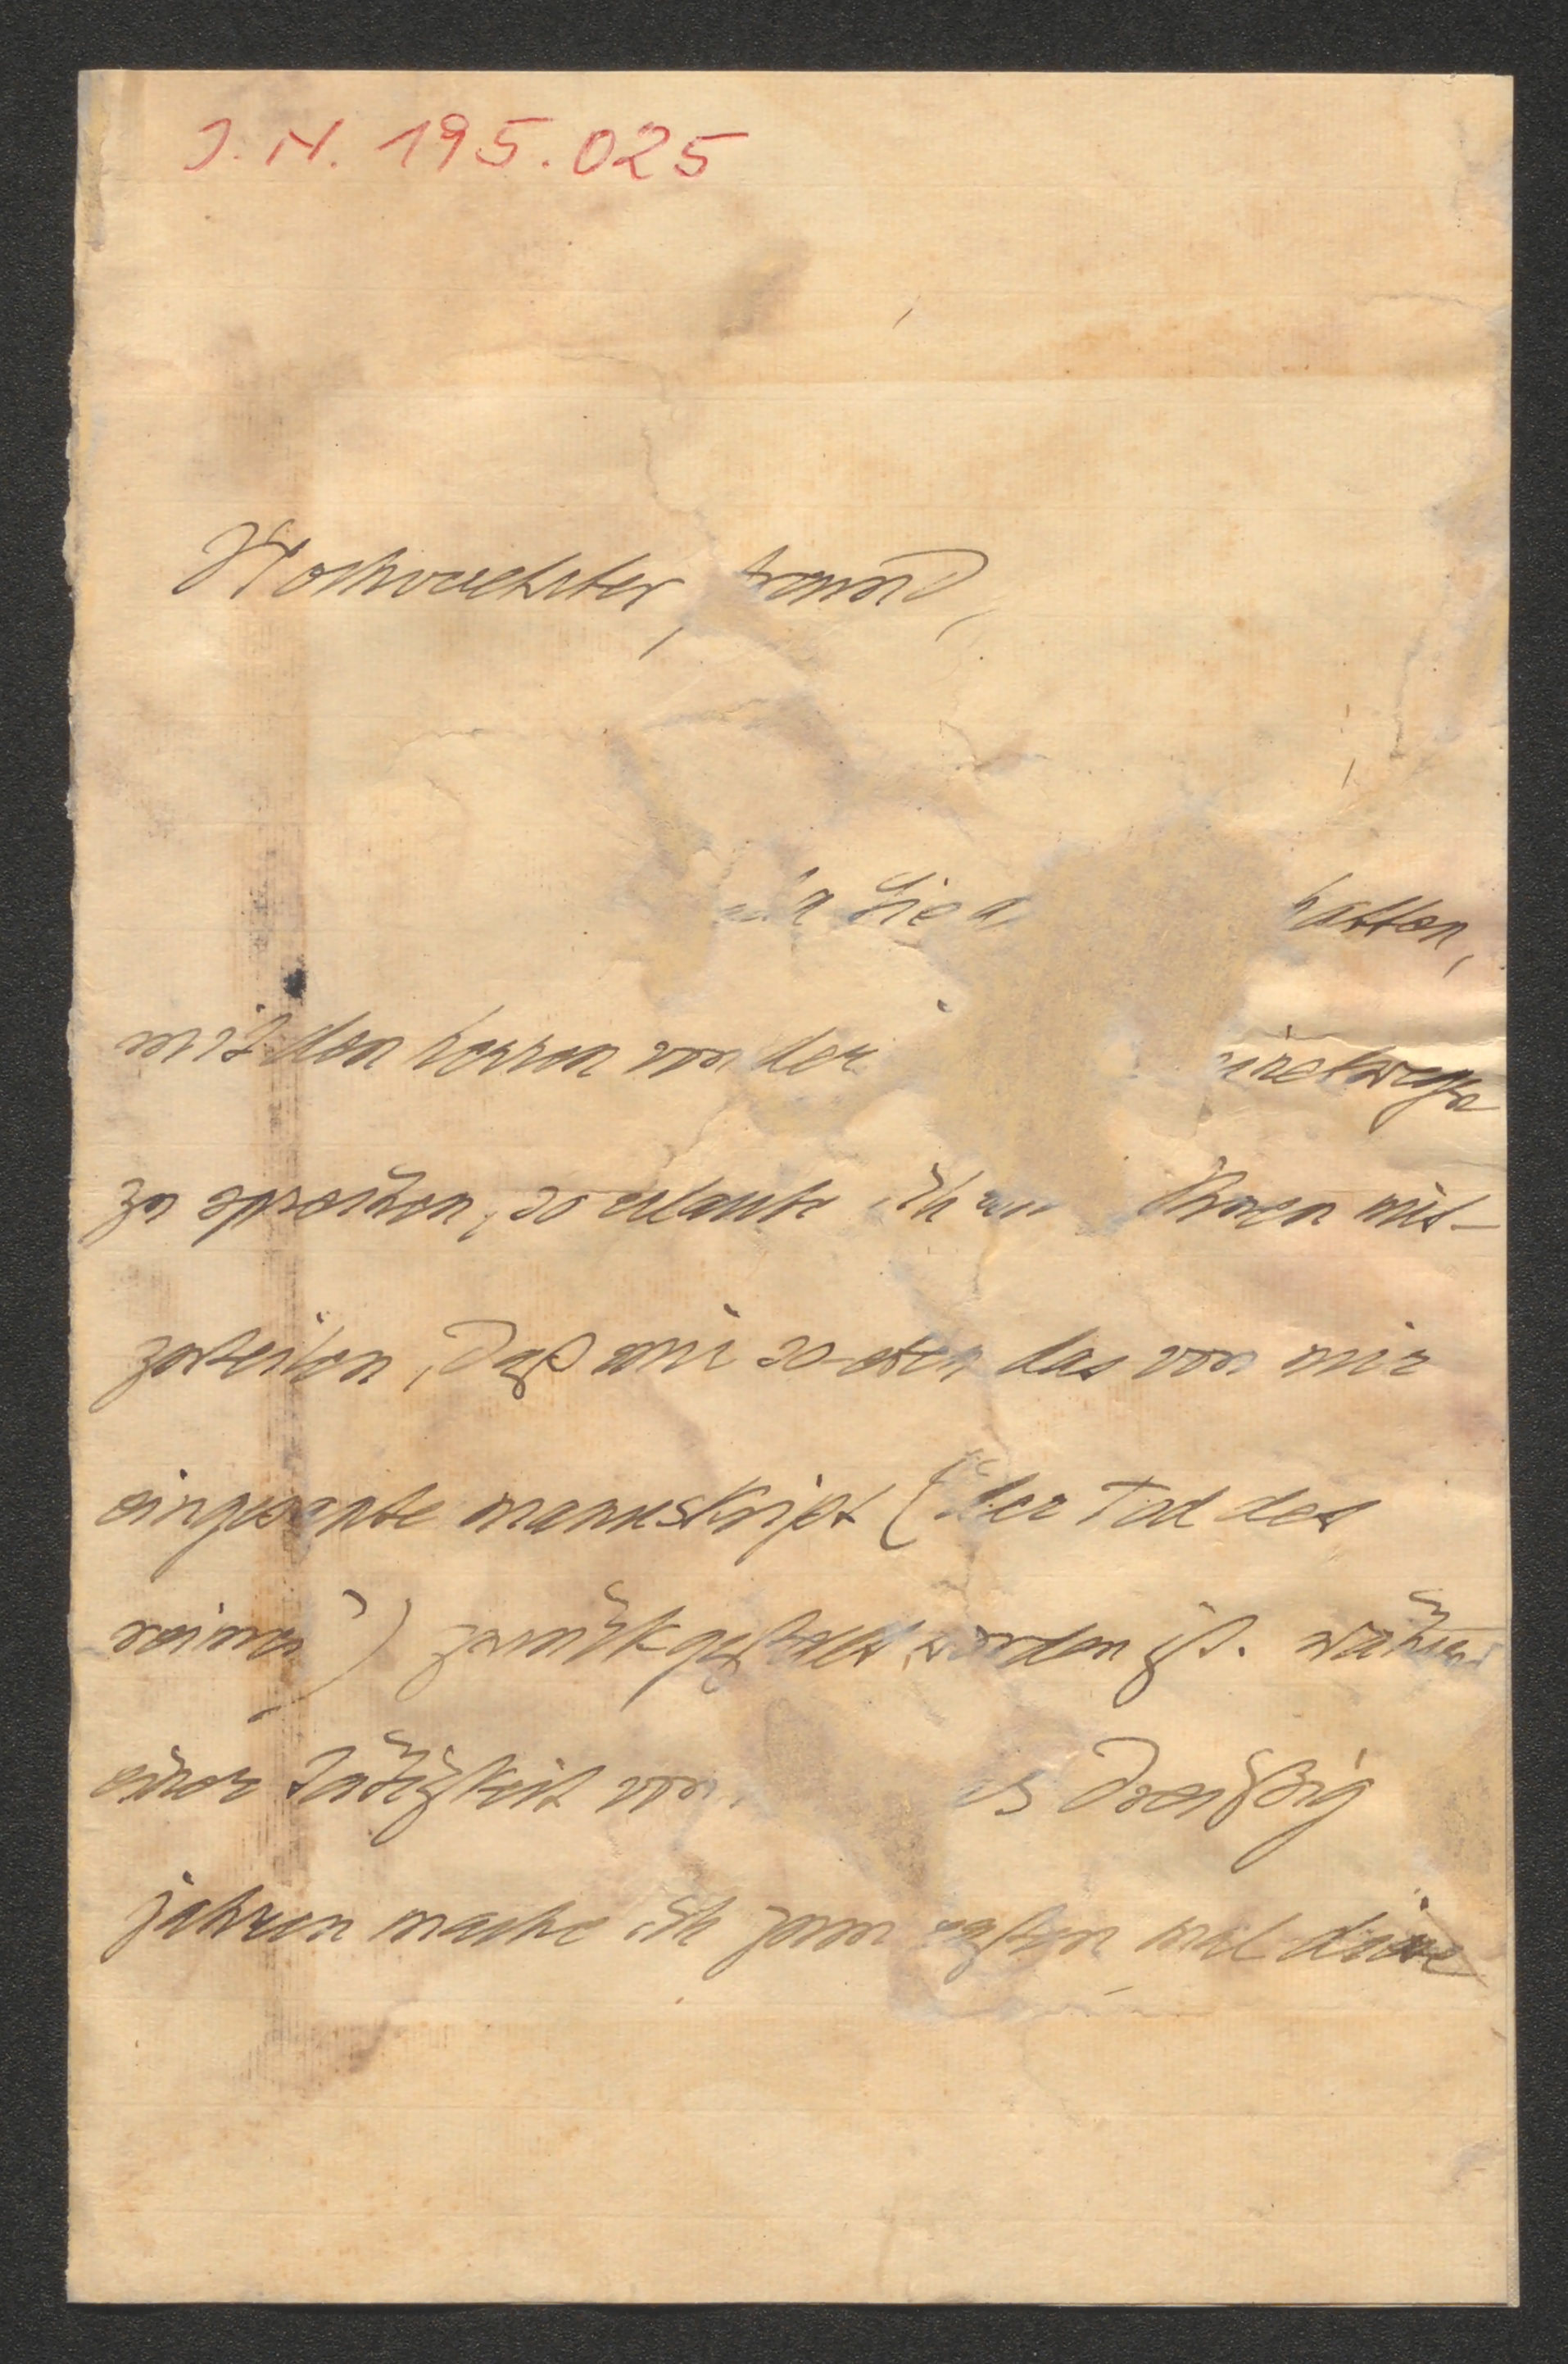 J.N. 195.025
Hochverehrter freund,
da Sie hatten,
mit den herren von der meinetwegen
zu sprechen, so erlaube ich mir Ihnen mit-
zuteilen, daß mir so-eben das von mir
eingesante manuskript (der Tod des
reimes) zurückgestellt worden ist. während
einer Tätigkeit von dreißig
jahren mache ich zum ersten mal diese